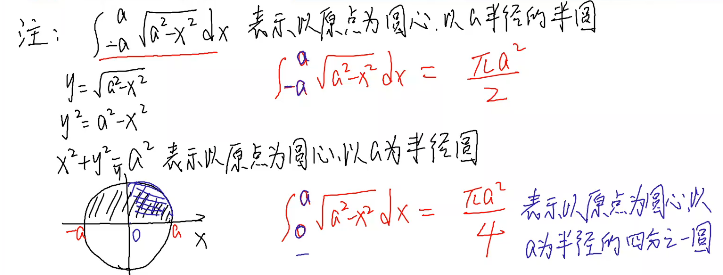 注: ∫_{-a}^{a} √(a²-x²) dx 表示以原点为圆心,以a半径的半圆
y=√(a²-x²)
∫_{-a}^{a} √(a²-x²) dx = πa²/2
y²=a²-x²
x²+y²=a² 表示以原点为圆心,以a为半径圆
y
-a 0 a x
∫_{0}^{a} √(a²-x²) dx = πa²/4 表示以原点为圆心,以
a为半径的四分之一圆